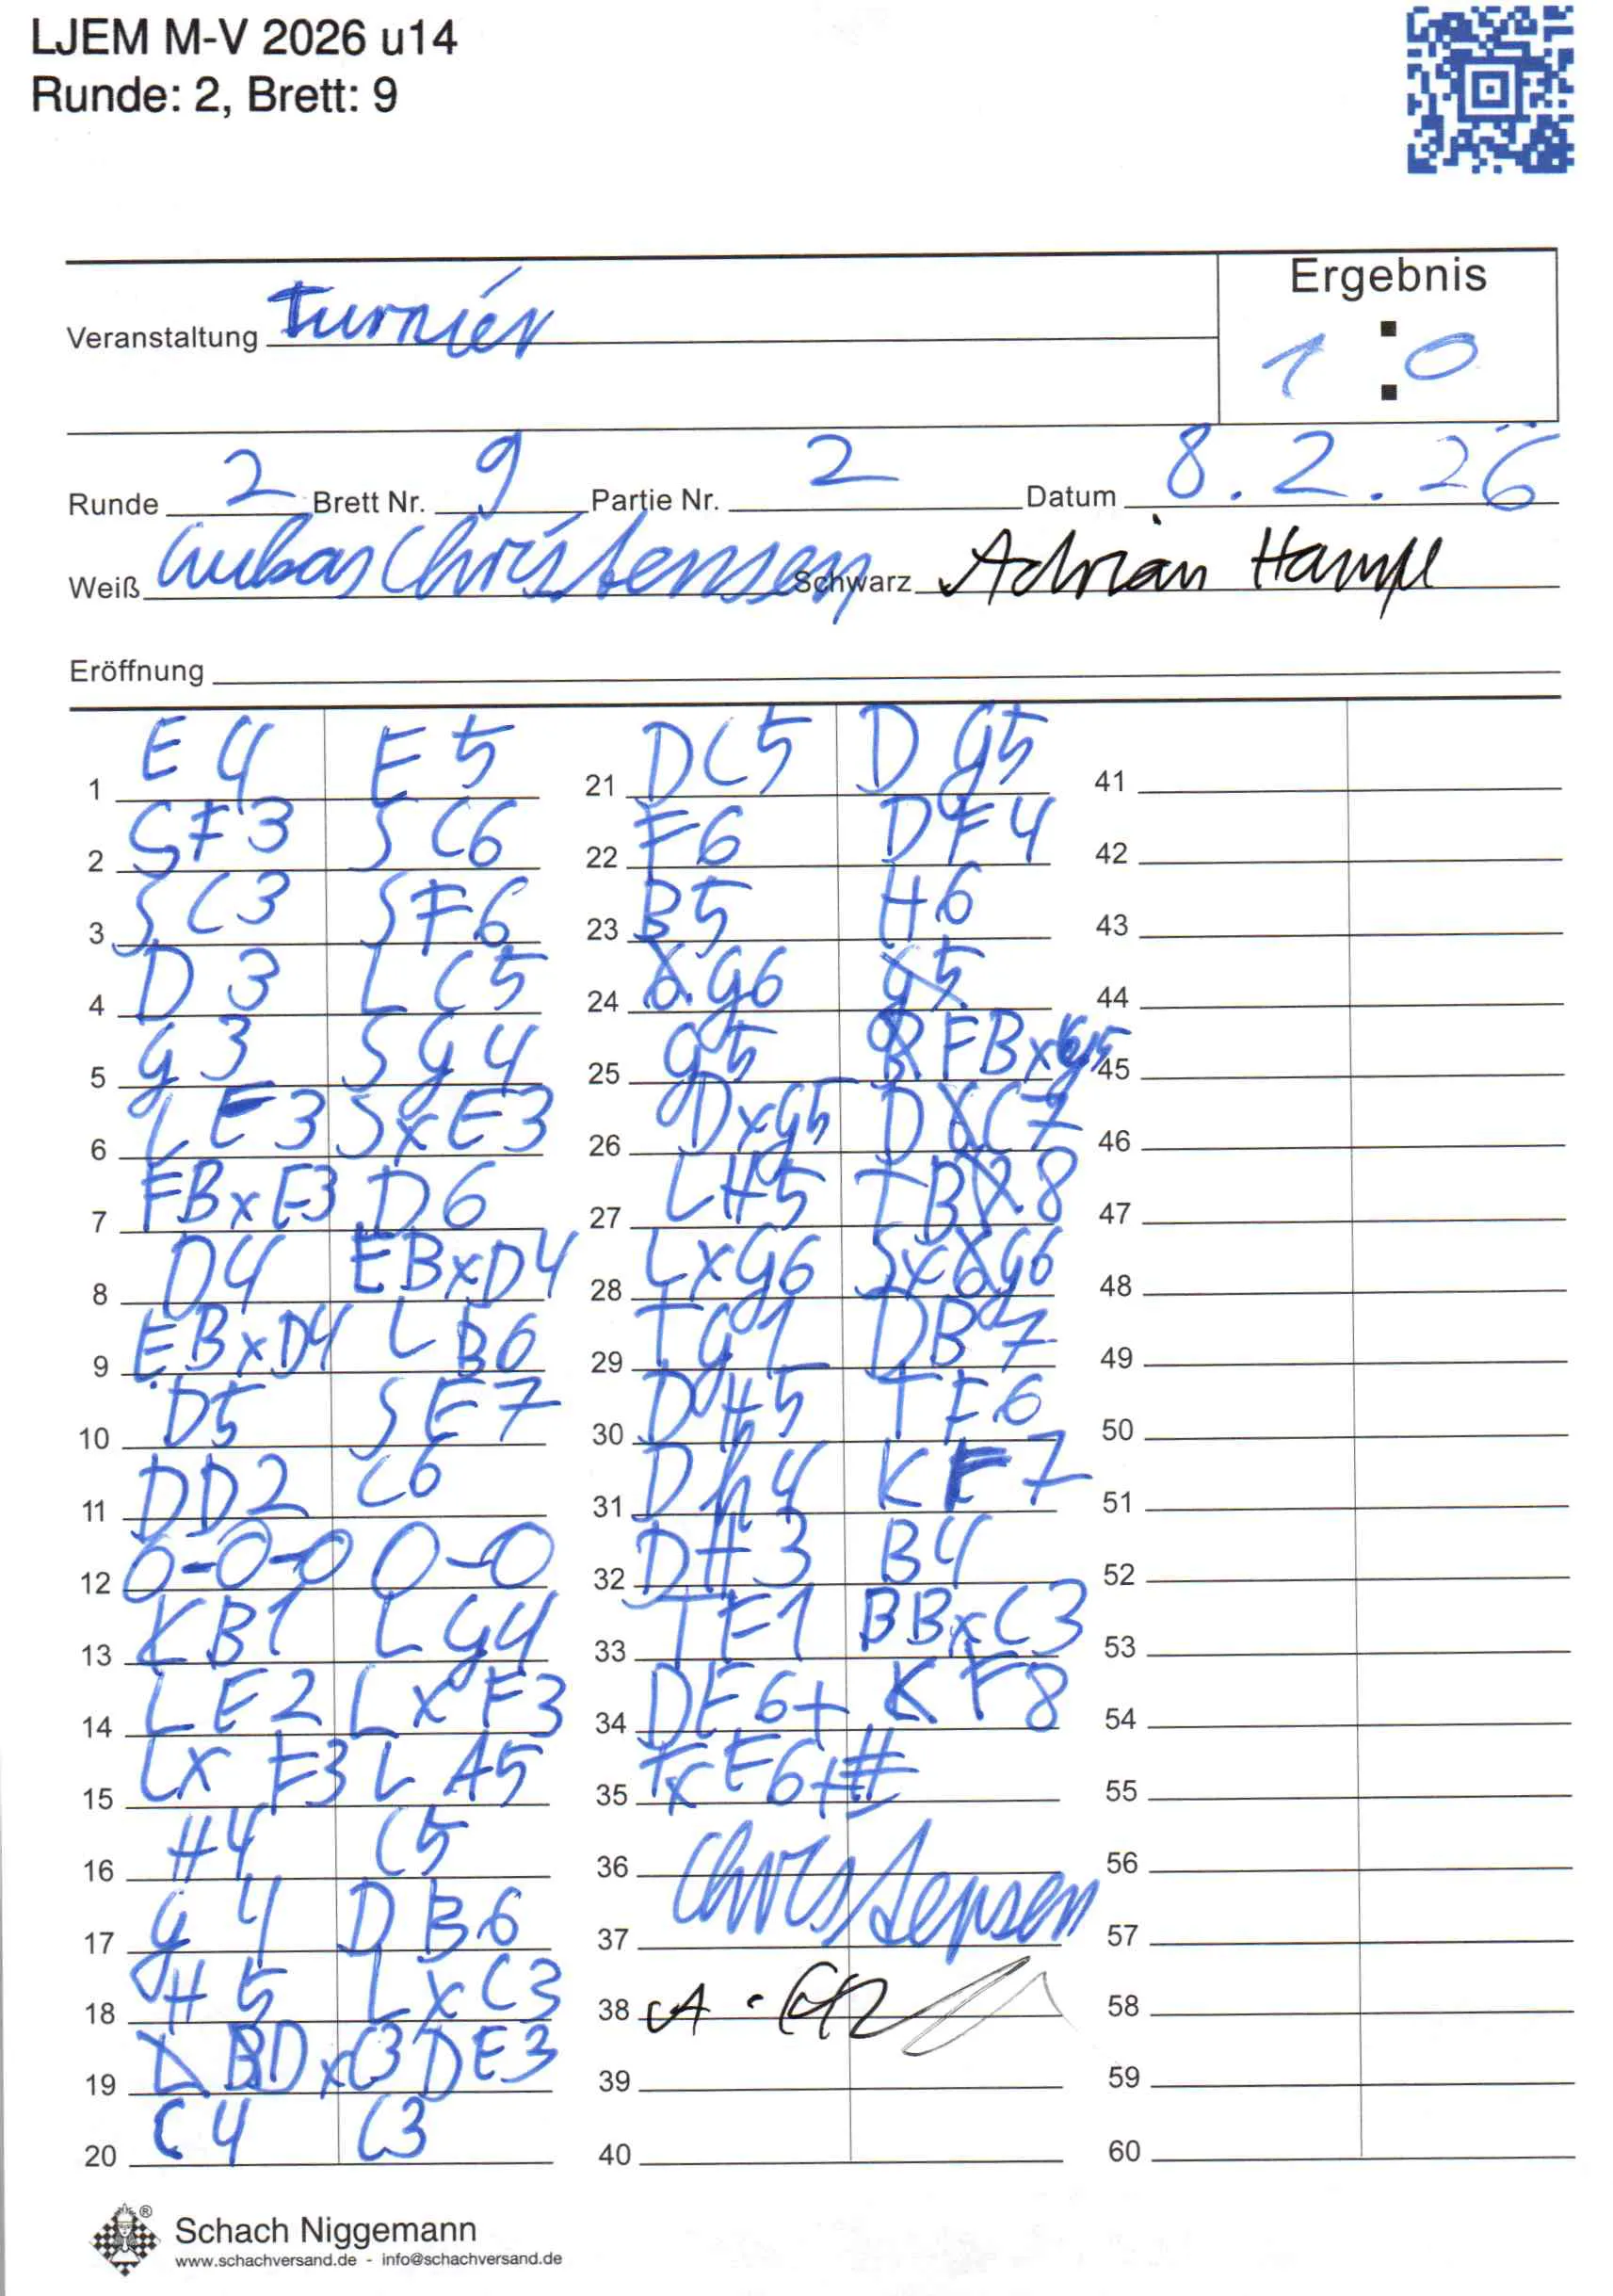 LJEM M-V 2026 u14
Runde: 2, Brett: 9
Ergebnis
Veranstaltung Turnier
1 : 0
Runde 2 Brett Nr. 9 Partie Nr. 2 Datum 8.2.26
Weiß Christensen Schwarz Adrian
Eröffnung
1 E4 E5
2 SF3 SC6
3 SC3 SF6
4 D3 LC5
5 g3 Sg4
6 LE3 SxE3
7 FBxE3 D6
8 D4 EBxD4
9 EBxD4 LB6
10 D5 SE7
11 DD2 C6
12 0-0-0 0-0
13 KB1 Lg4
14 LE2 LxF3
15 LxF3 LA5
16 H4 C5
17 g4 DB6
18 H5 LxC3
19 DxC3 DE3
20 C4 C3
21 DC5 Dg5
22 F6 DF4
23 B5 H6
24 g6
25 g5 FBxg5
26 Dxg5 DC7
27 LH5 TB8
28 Lxg6 Sxg6
29 Tg1 DB7
30 DH5 TE6
31 Dh4 KF7
32 DH3 B4
33 TE1 BBxC3
34 DE6+ KF8
35 TxE6+#
36 Christensen
37
38
39
40
41
42
43
44
45
46
47
48
49
50
51
52
53
54
55
56
57
58
59
60
Schach Niggemann
www.schachversand.de - info@schachversand.de